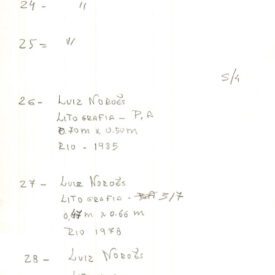 24 - "
25 = "
S/4
26 - LUIZ NORÕES
LITOGRAFIA - P.A
0.70m x 0.50m
RIO - 1985
27 - LUIZ NORÕES
LITOGRAFIA - 3/7
0,47m x 0.66 m
RIO 1978
28 - LUIZ NORÕES